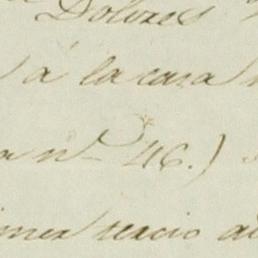 Dolores
á la casa
nº 46.)
tercio